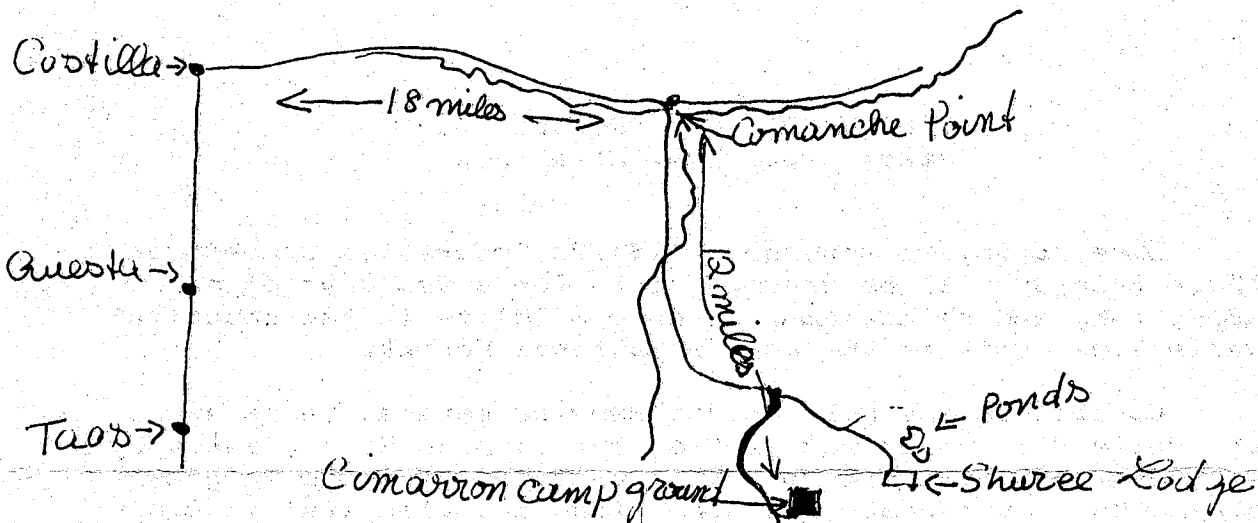 Costilla
18 miles
Comanche Point
Questa
12 miles
Ponds
Taos
Cimarron campground
Shuree Lodge